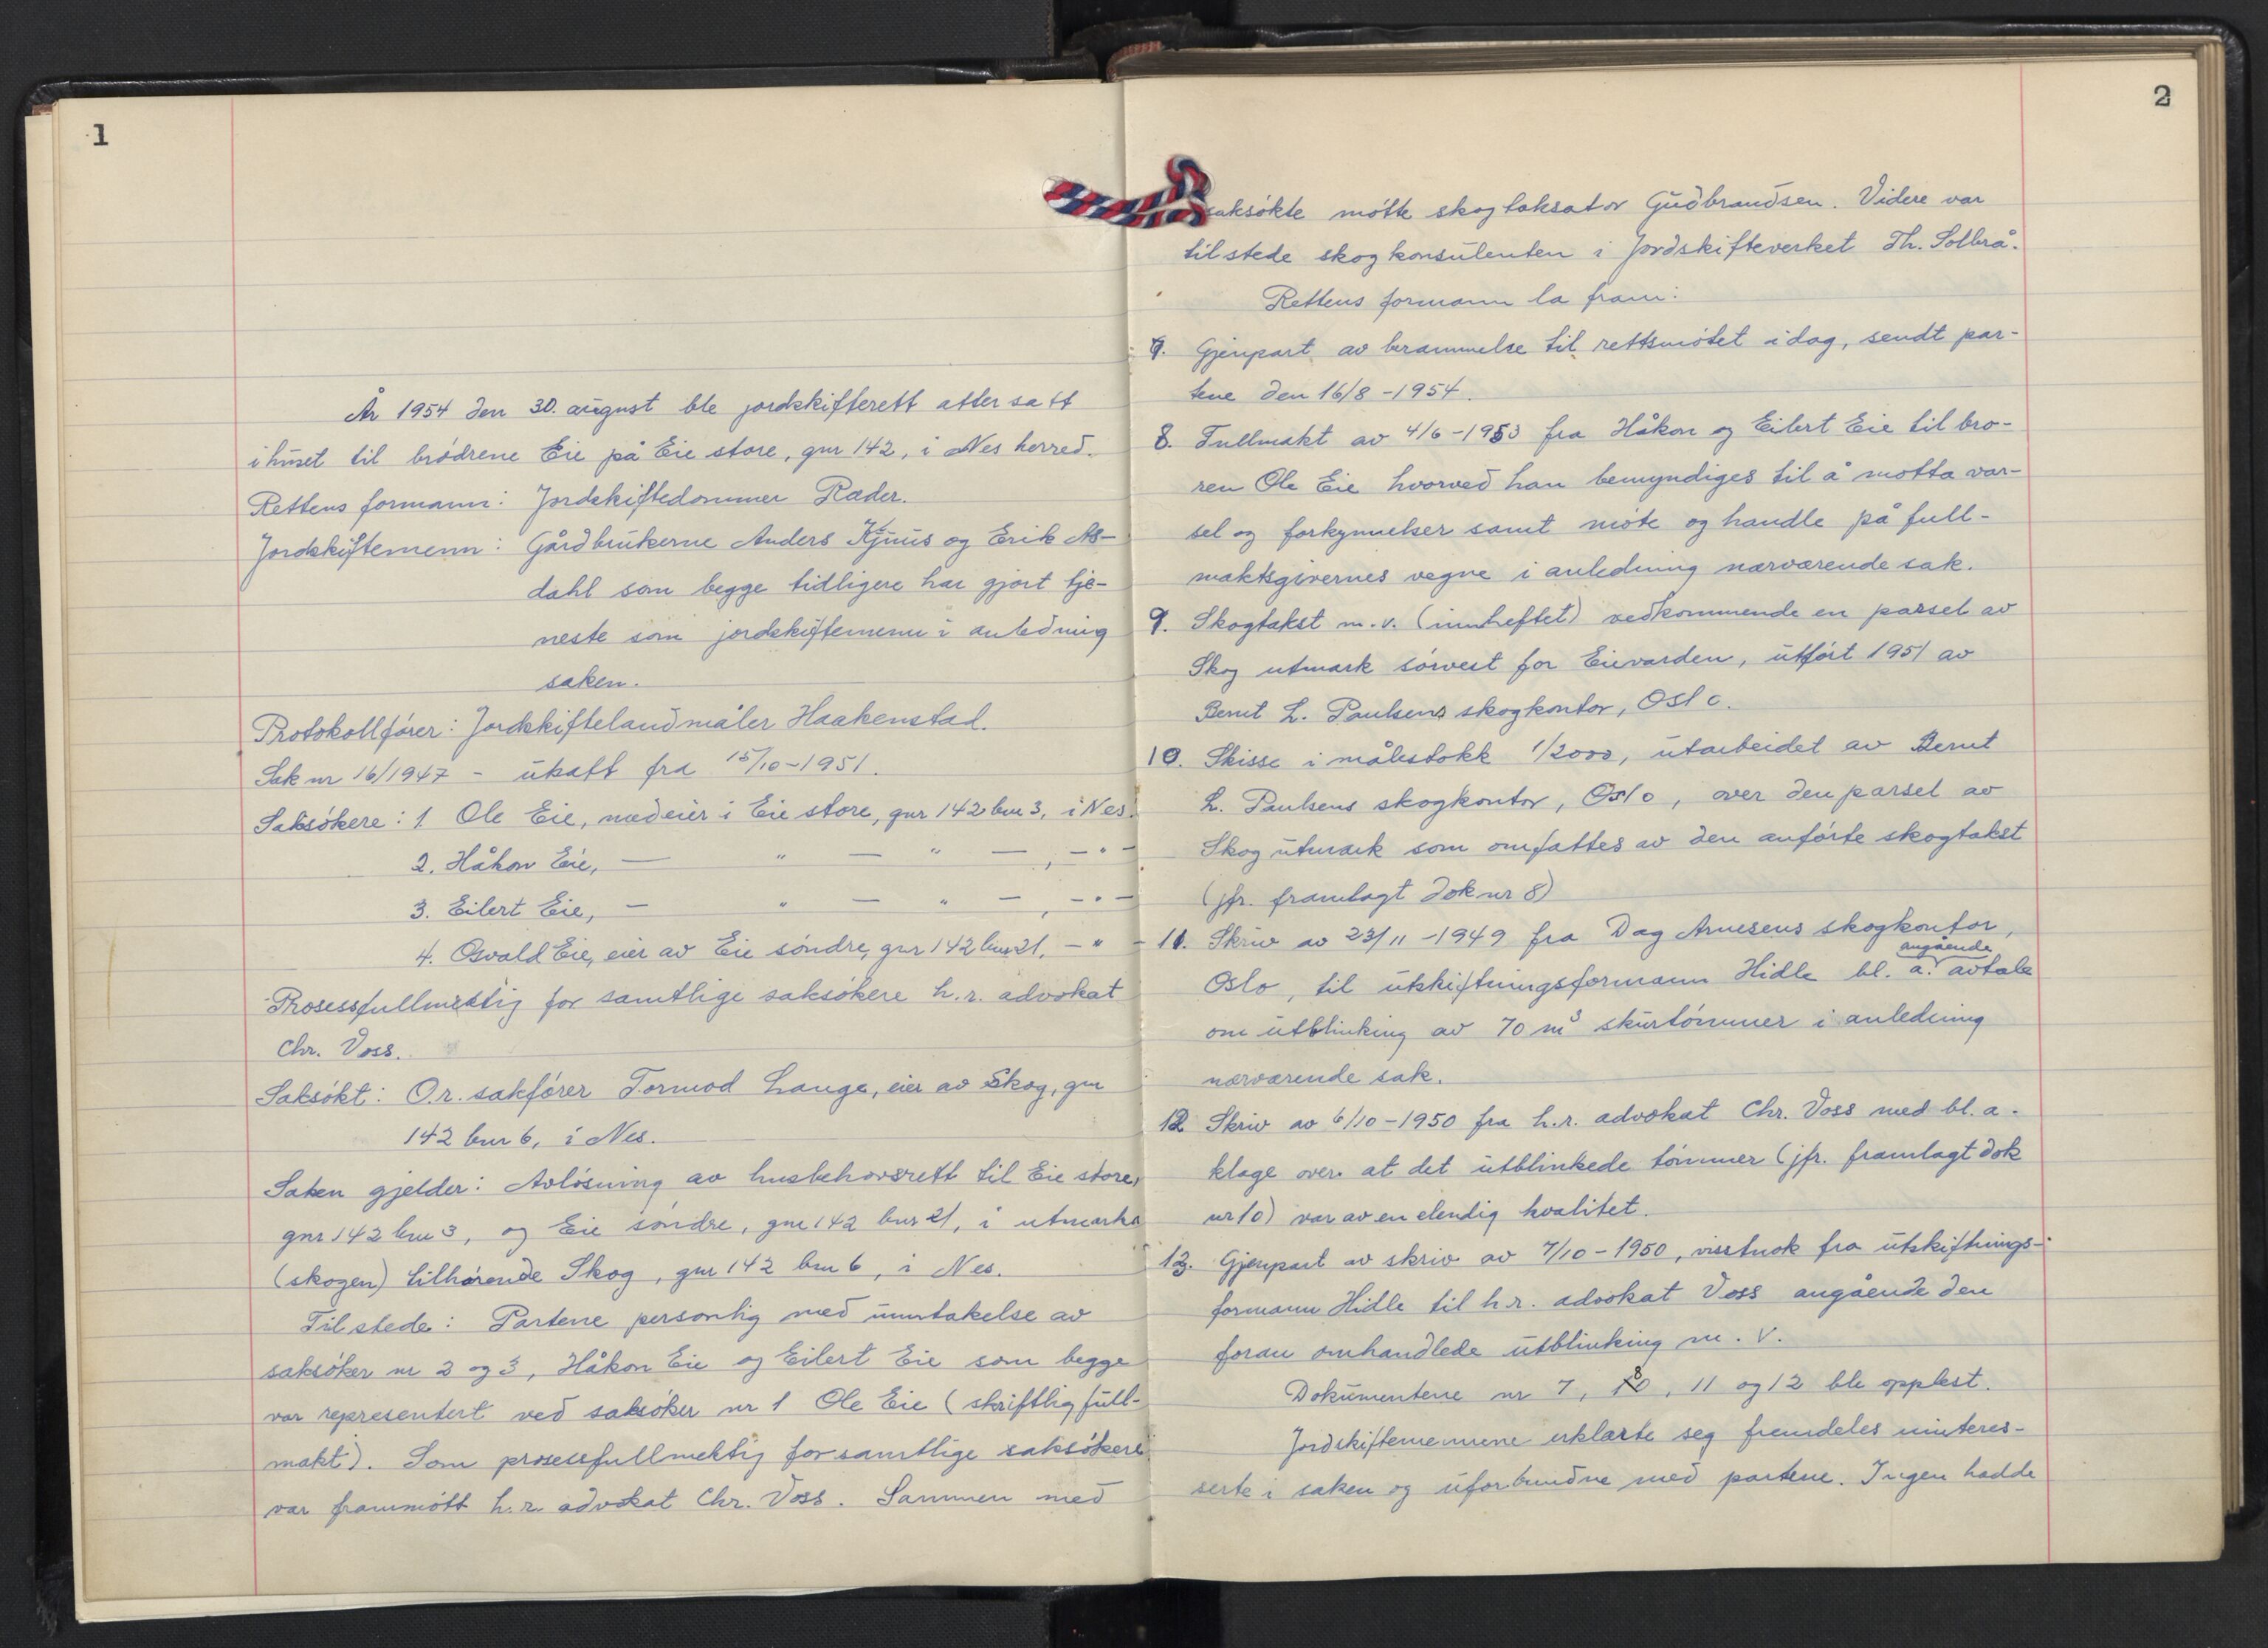 1
År 1954 den 30. august ble jordskifterett atter satt
i huset til brødrene Eie på Eie store, gnr 142, i Nes herred.
Rettens formann: Jordskiftedommer Ræder.
Jordskiftemenn: Gårdbrukerne Anders Kjuus og Erik As-
dahl som begge tidligere har gjort tje-
neste som jordskiftemenn i anledning
saken.
Protokollfører: Jordskiftelandmåler Haakenstad.
Sak nr 16/1947 - utsatt fra 15/10-1951.
Saksøkere: 1. Ole Eie, medeier i Eie store, gnr 142 bnr 3, i Nes.
2. Håkon Eie, — " — " — , — " —
3. Eilert Eie, — " — " — , — " —
4. Osvald Eie, eier av Eie søndre, gnr 142 bnr 21, — " —
Prosessfullmektig for samtlige saksøkere h.r. advokat
Chr. Voss.
Saksøkt: O.r. sakfører Tormod Lange, eier av Skog, gnr
142 bnr 6, i Nes.
Saken gjelder: Avløsning av husbehovsrett til Eie store,
gnr 142 bnr 3, og Eie søndre, gnr 142 bnr 21, i utmarka
(skogen) tilhørende Skog, gnr 142 bnr 6, i Nes.
Tilstede: Partene personlig med unntakelse av
saksøker nr 2 og 3, Håkon Eie og Eilert Eie som begge
var representert ved saksøker nr 1 Ole Eie (skriftlig full-
makt). Som prosessfullmektig for samtlige saksøkere
var frammøtt h.r. advokat Chr. Voss. Sammen med
2
saksøkte møtte skogtaksator Gudbrandsen. Videre var
tilstede skogkonsulenten i Jordskifteverket Th. Solbraa.
Rettens formann la fram:
7. Gjenpart av berammelse til rettsmøtet idag, sendt par-
tene den 16/8-1954.
8. Fullmakt av 4/6-1953 fra Håkon og Eilert Eie til bro-
ren Ole Eie hvorved han bemyndiges til å motta var-
sel og forkynnelser samt møte og handle på full-
maktsgivernes vegne i anledning nærværende sak.
9. Skogtakst m.v. (innheftet) vedkommende en parsel av
Skog utmark sørvest for Eievarden, utført 1951 av
Bernt L. Paulsens skogkontor, Oslo.
10. Skisse i målestokk 1/2000, utarbeidet av Bernt
L. Paulsens skogkontor, Oslo, over den parsel av
Skog utmark som omfattes av den anførte skogtakst
(jfr. framlagt dok nr 8)
11. Skriv av 23/11-1949 fra Dag Arnesens skogkontor,
Oslo, til utskiftningsformann Hidle bl. a. angående avtale
om utblinking av 70 m³ skurtømmer i anledning
nærværende sak.
12 Skriv av 6/10-1950 fra h.r. advokat Chr. Voss med bl. a.
klage over at det utblinkede tømmer (jfr. framlagt dok
nr 10) var av en elendig kvalitet.
13. Gjenpart av skriv av 7/10-1950, visstnok fra utskiftnings-
formann Hidle til h.r. advokat Voss angående den
foran omhandlede utblinking m.v.
Dokumentene nr 7, 8, 10, 11 og 12 ble opplest.
Jordskiftemennene erklærte seg fremdeles uinteres-
serte i saken og uforbundne med partene. Ingen hadde